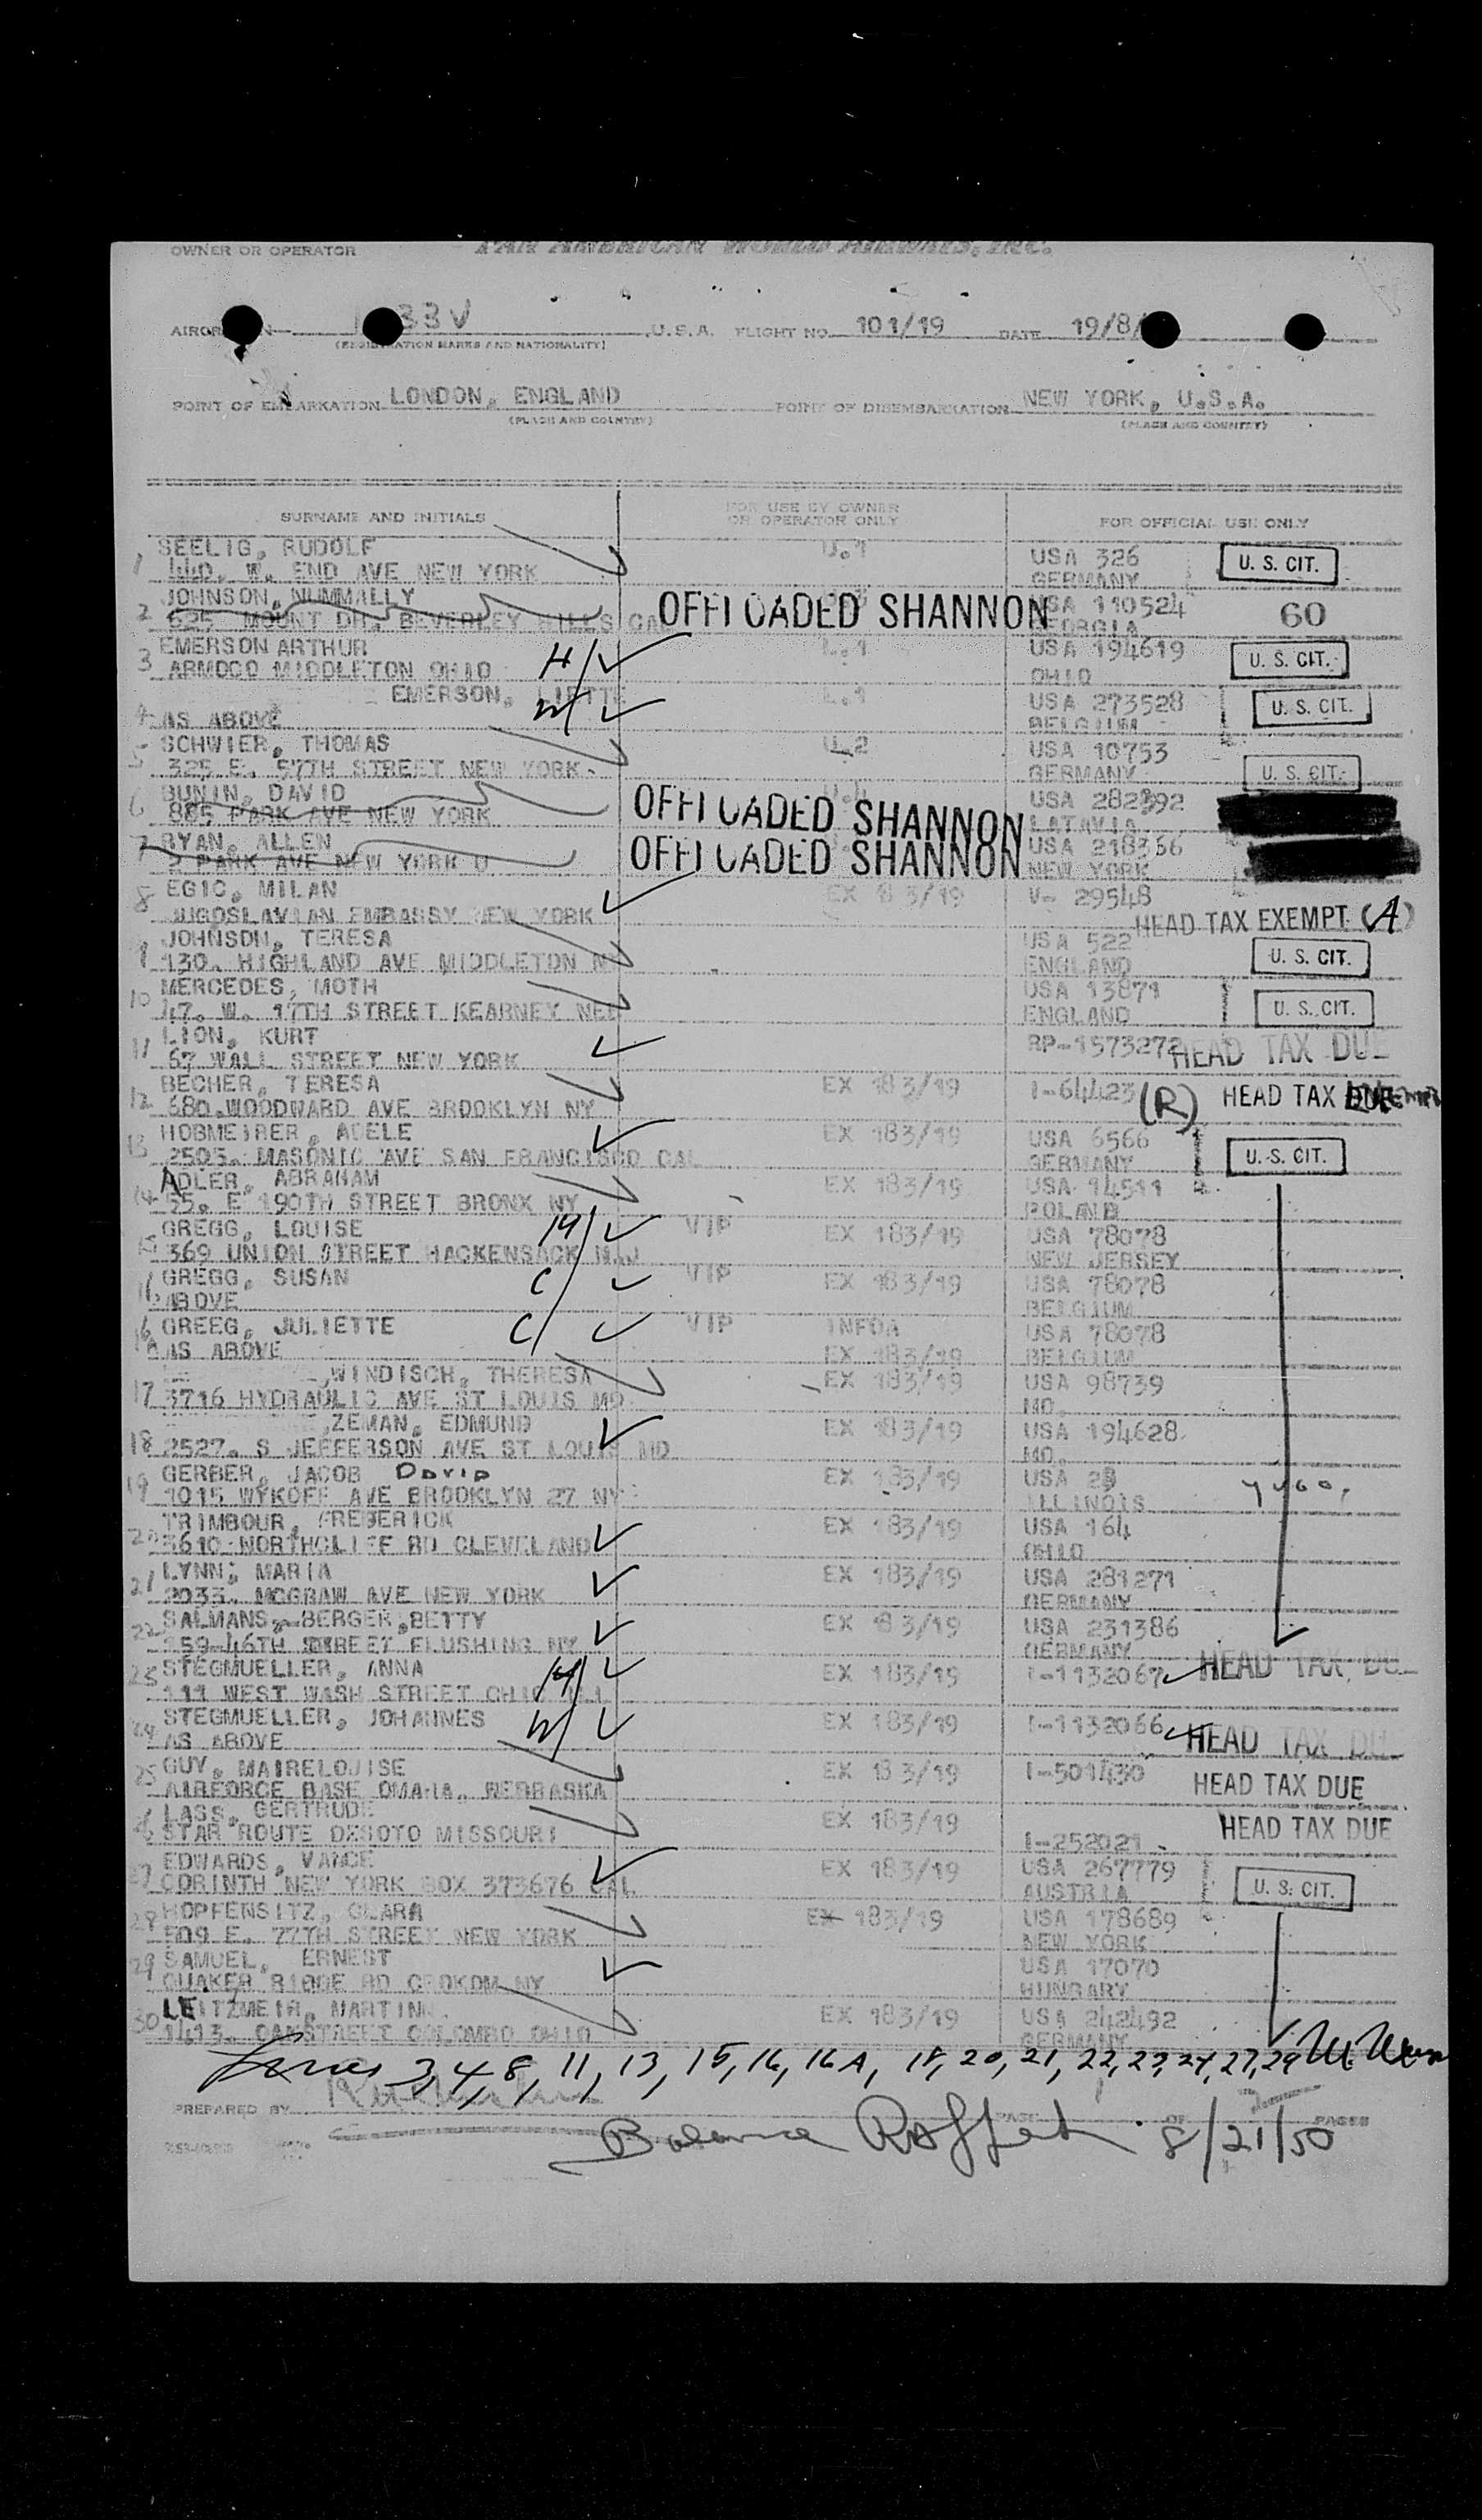 OWNER OR OPERATOR PAN AMERICAN WORLD AIRWAYS, INC.
33V U.S.A. FLIGHT NO. 101/19 DATE 19/8/
(REGISTRATION MARKS AND NATIONALITY)
POINT OF EMBARKATION LONDON, ENGLAND POINT OF DISEMBARKATION NEW YORK, U.S.A.
(PLACE AND COUNTRY) (PLACE AND COUNTRY)
SURNAME AND INITIALS FOR USE BY OWNER OR OPERATOR ONLY FOR OFFICIAL USE ONLY
1 SEELIG, RUDOLF U.1 USA 326 U. S. CIT.
440. W. END AVE NEW YORK GERMANY
2 JOHNSON, NUMMALLY OFFLOADED SHANNON USA 110524 60
625 MOUNT DR. BEVERLEY HILLS CAL GEORGIA
3 EMERSON ARTHUR H L.1 USA 194619 U. S. CIT.
ARMOCO MIDDLETON OHIO OHIO
EMERSON, LIETTE W L.1 USA 273528 U. S. CIT.
4 AS ABOVE BELGIUM
5 SCHWIER, THOMAS U.2 USA 10753
325 E. 57TH STREET NEW YORK. GERMANY U. S. CIT.
6 BUNIN, DAVID OFFLOADED SHANNON USA 282392
885 PARK AVE NEW YORK LATAVIA
7 RYAN, ALLEN OFFLOADED SHANNON USA 218366
2 PARK AVE NEW YORK NEW YORK
8 EGIC, MILAN EX 183/19 V- 29548
JUGOSLAVIAN EMBASSY NEW YORK HEAD TAX EXEMPT (A)
9 JOHNSON, TERESA USA 522
130. HIGHLAND AVE MIDDLETON N ENGLAND U. S. CIT.
10 MERCEDES, MOTH USA 13871
47. W. 17TH STREET KEARNEY NEB ENGLAND U. S. CIT.
11 LION, KURT RP-1573272 HEAD TAX DUE
67 WALL STREET NEW YORK
12 BECHER, TERESA EX 183/19 I-64423 (R) HEAD TAX
680.WOODWARD AVE BROOKLYN NY
13 HOBMEIRER, ADELE EX 183/19 USA 6566
2505. MASONIC AVE SAN FRANCISCO CAL GERMANY U. S. CIT.
14 ADLER, ABRAHAM EX 183/19 USA 14511
55. E 190TH STREET BRONX NY POLAND
15 GREGG, LOUISE M VIP EX 183/19 USA 78078
369 UNION STREET HACKENSACK N.J NEW JERSEY
16 GREGG, SUSAN C VIP EX 183/19 USA 78078
ABOVE BELGIUM
16 GREEG, JULIETTE C VIP INFOA USA 78078
A AS ABOVE EX 183/19 BELGIUM
,WINDISCH, THERESA EX 183/19 USA 98739
17 3716 HYDRAULIC AVE ST LOUIS MO MO.
,ZEMAN, EDMUND EX 183/19 USA 194628
18 2527. S JEFFERSON AVE ST LOUIS MO MO.
19 GERBER, JACOB DAVID EX 183/19 USA 28
1015 WYKOFF AVE BROOKLYN 27 NY ILLINOIS
20 TRIMBOUR, FREDERICK EX 183/19 USA 164
3610 NORTHCLIFF RD CLEVELAND OHIO
21 LYNN, MARIA EX 183/19 USA 281271
2033. MCGRAW AVE NEW YORK GERMANY
22 SALMANS,-BERGER,BETTY EX 183/19 USA 231386
159-46TH STREET FLUSHING NY GERMANY
23 STEGMUELLER, ANNA EX 183/19 I-1132067 HEAD TAX DUE
111 WEST WASH STREET CHIC ILL
24 STEGMUELLER, JOHANNES EX 183/19 I-1132066 HEAD TAX DUE
AS ABOVE
25 GUY, MAIRELOUISE EX 183/19 I-501430 HEAD TAX DUE
AIRFORCE BASE OMAHA, NEBRASKA
26 LASS, GERTRUDE EX 183/19 HEAD TAX DUE
STAR ROUTE DESOTO MISSOURI I-252021
27 EDWARDS, VANCE EX 183/19 USA 267779
CORINTH NEW YORK BOX 373676 CAL AUSTRIA U. S. CIT.
28 HOPFENSITZ, CLARA EX 183/19 USA 178689
509 E. 77TH STREET NEW YORK NEW YORK
29 SAMUEL, ERNEST USA 17070
QUAKER RIDGE RD NY HUNGARY
30 LEITZMEIR, MARTIN EX 183/19 USA 242492
1413. OAKSTREET COLOMBO OHIO GERMANY
Lines 3, 4, 8, 11, 13, 15, 16, 16A, 18, 20, 21, 22, 23, 24, 27, 29
PREPARED BY PAGE OF PAGES
Balance 8/21/50